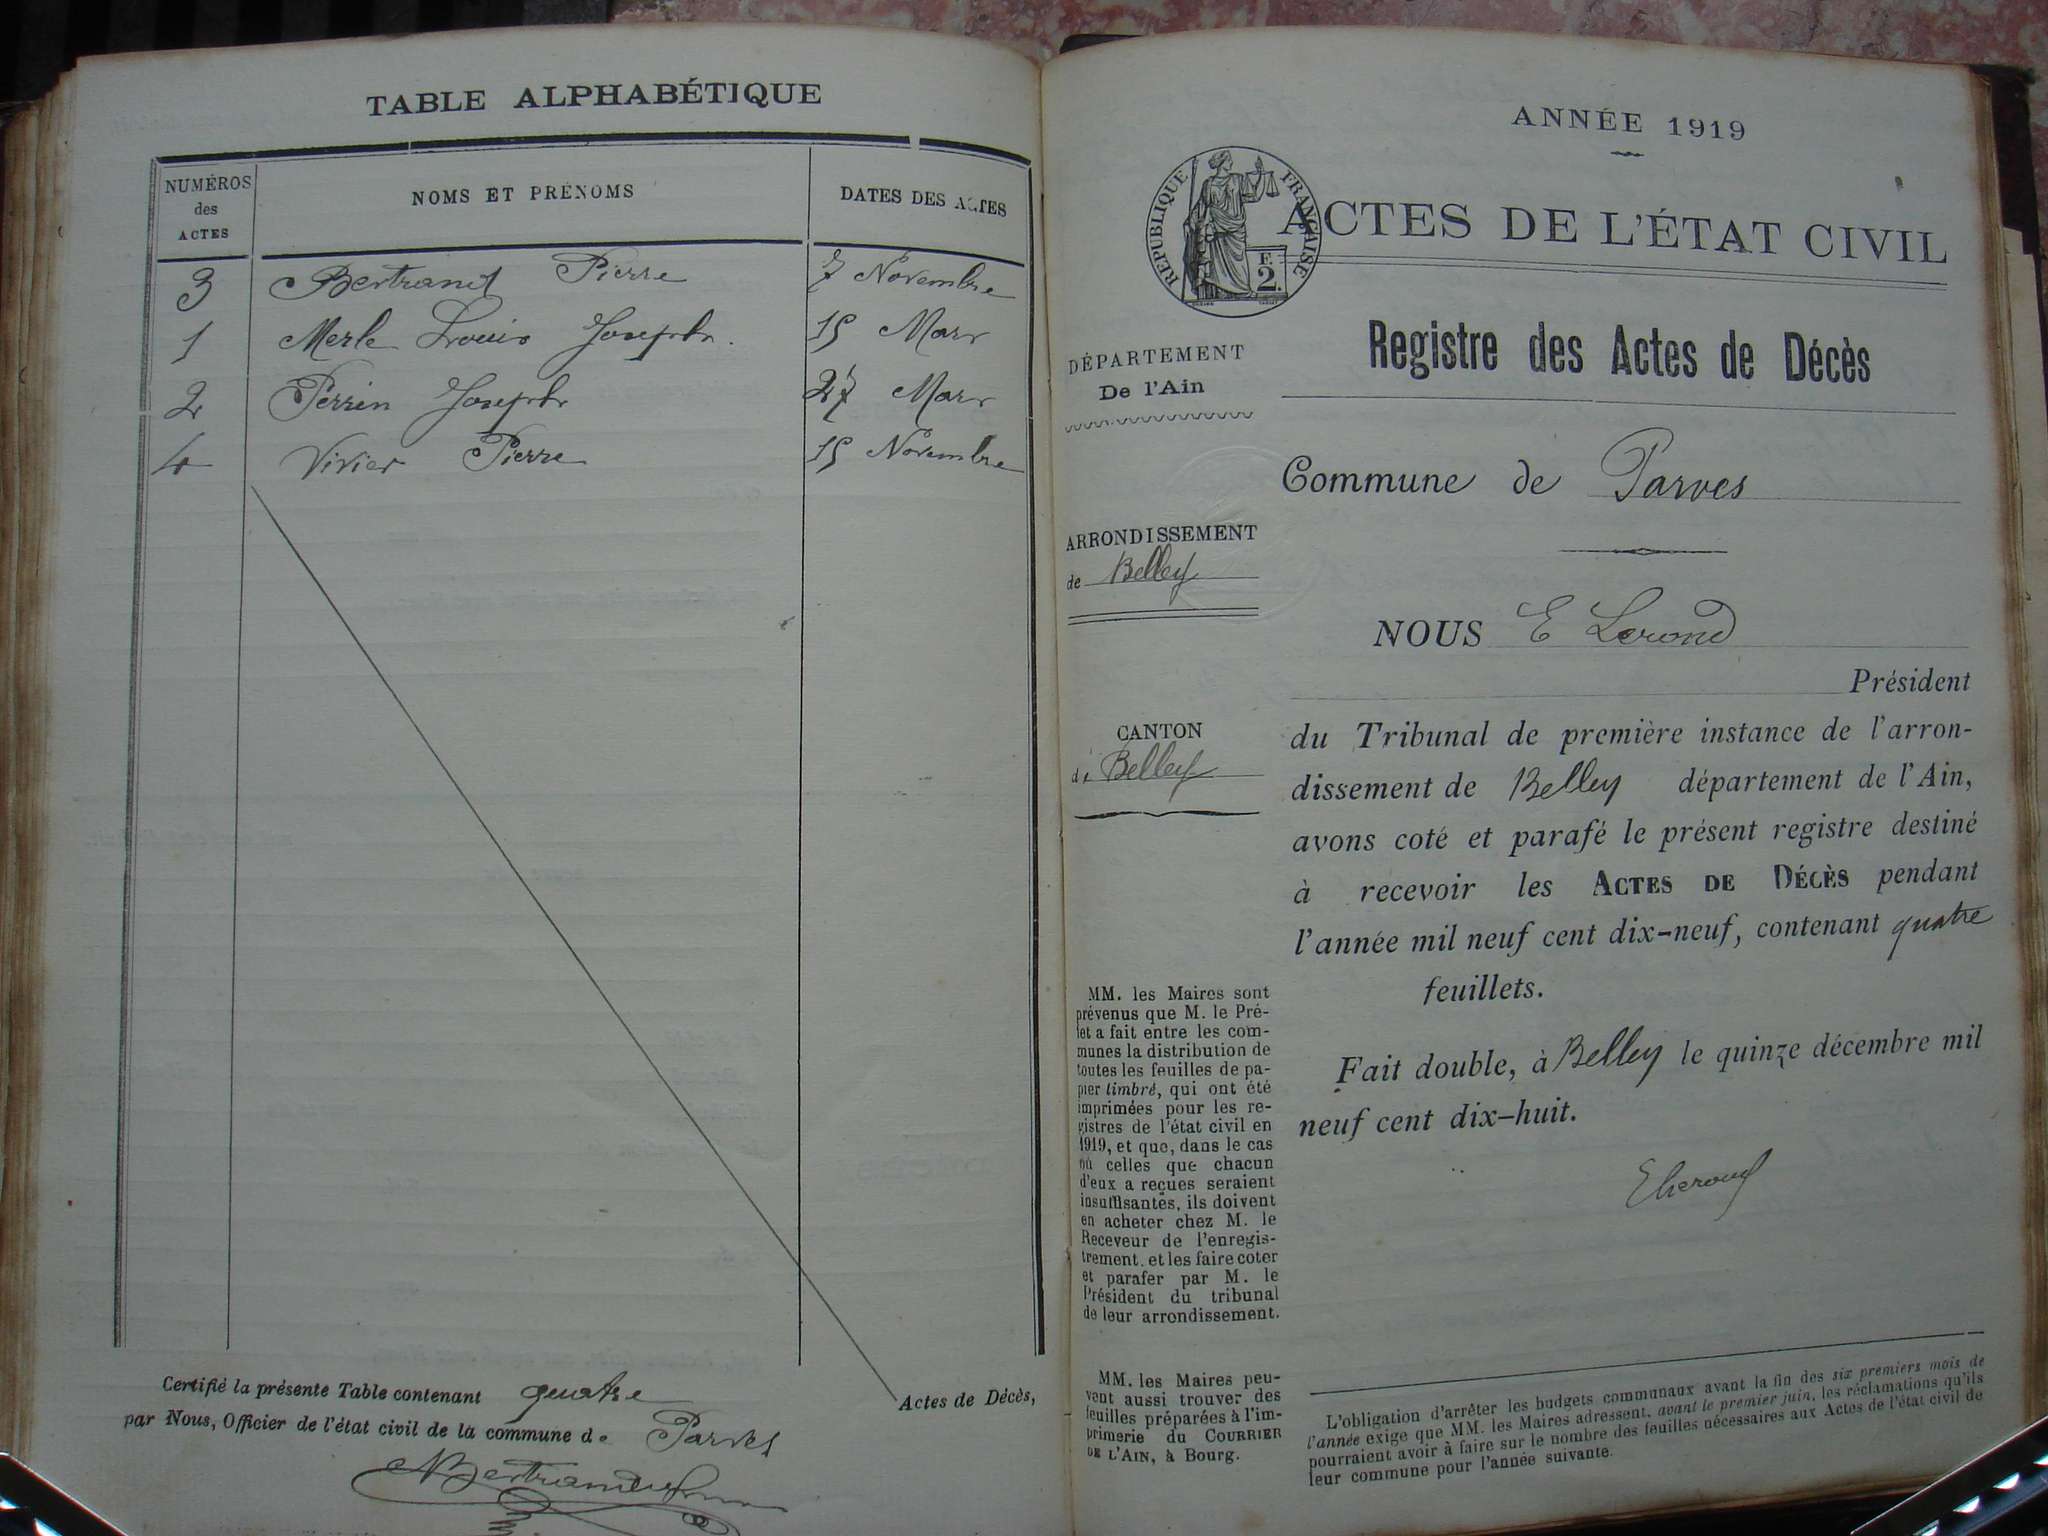 TABLE ALPHABÉTIQUE
NUMÉROS des ACTES
NOMS ET PRÉNOMS
DATES DES ACTES
3 Bertrand Pierre 7 Novembre
1 Merle Louis Joseph. 15 Mars
2 Perrin Joseph 27 Mars
4 Vivier Pierre 15 Novembre
Certifié la présente Table contenant quatre Actes de Décès,
par Nous, Officier de l'état civil de la commune de Parves
ANNÉE 1919
RÉPUBLIQUE FRANÇAISE
F.
2.
ACTES DE L'ÉTAT CIVIL
Registre des Actes de Décès
DÉPARTEMENT
De l'Ain
Commune de Parves
ARRONDISSEMENT
de Belley
NOUS E
Président
CANTON
de Belley
du Tribunal de première instance de l'arron-
dissement de Belley département de l'Ain,
avons coté et parafé le présent registre destiné
à recevoir les ACTES DE DÉCÈS pendant
l'année mil neuf cent dix-neuf, contenant quatre
feuillets.
Fait double, à Belley le quinze décembre mil
neuf cent dix-huit.
MM. les Maires sont
prévenus que M. le Pré-
fet a fait entre les com-
munes la distribution de
toutes les feuilles de pa-
pier timbré, qui ont été
imprimées pour les re-
gistres de l'état civil en
1919, et que, dans le cas
où celles que chacun
d'eux a reçues seraient
insuffisantes, ils doivent
en acheter chez M. le
Receveur de l'enregis-
trement. et les faire coter
et parafer par M. le
Président du tribunal
de leur arrondissement.
MM. les Maires peu-
vent aussi trouver des
feuilles préparées à l'im-
primerie du COURRIER
DE L'AIN, à Bourg.
L'obligation d'arrêter les budgets communaux avant la fin des six premiers mois de
l'année exige que MM. les Maires adressent, avant le premier juin, les réclamations qu'ils
pourraient avoir à faire sur le nombre des feuilles nécessaires aux Actes de l'état civil de
leur commune pour l'année suivante.